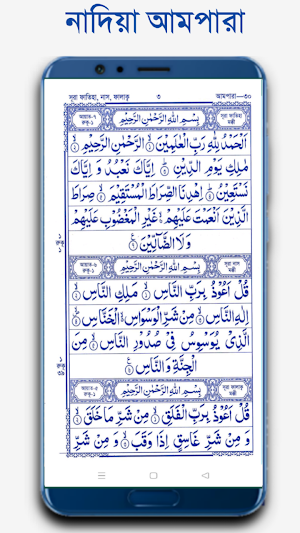 নাদিয়া আমপারা
সূরা ফাতিহা, নাস, ফালাক্ব ৩ আমপারা—৩০
আয়াত-৭ রুকূ-১ بِسْمِ اللهِ الرَّحْمٰنِ الرَّحِيْمِ সূরা ফাতিহা মক্কী
اَلْحَمْدُ لِلّٰهِ رَبِّ الْعٰلَمِيْنَ ۝ الرَّحْمٰنِ الرَّحِيْمِ ۝
مٰلِكِ يَوْمِ الدِّيْنِ ۝ اِيَّاكَ نَعْبُدُ وَ اِيَّاكَ
نَسْتَعِيْنُ ۝ اِهْدِنَا الصِّرَاطَ الْمُسْتَقِيْمَ ۝ صِرَاطَ
الَّذِيْنَ اَنْعَمْتَ عَلَيْهِمْ ۝ غَيْرِ الْمَغْضُوْبِ عَلَيْهِمْ
وَلَا الضَّآلِّيْنَ ۝
আয়াত-৬ রুকূ-১ بِسْمِ اللهِ الرَّحْمٰنِ الرَّحِيْمِ সূরা নাস মক্কী
قُلْ اَعُوْذُ بِرَبِّ النَّاسِ ۝ مَلِكِ النَّاسِ ۝
اِلٰهِ النَّاسِ ۝ مِنْ شَرِّ الْوَسْوَاسِ الْخَنَّاسِ ۝
الَّذِيْ يُوَسْوِسُ فِيْ صُدُوْرِ النَّاسِ ۝ مِنَ
الْجِنَّةِ وَالنَّاسِ ۝
আয়াত-৫ রুকূ-১ بِسْمِ اللهِ الرَّحْمٰنِ الرَّحِيْمِ সূরা ফালাক্ব মক্কী
قُلْ اَعُوْذُ بِرَبِّ الْفَلَقِ ۝ مِنْ شَرِّ مَا خَلَقَ ۝
وَ مِنْ شَرِّ غَاسِقٍ اِذَا وَقَبَ ۝ وَ مِنْ شَرِّ